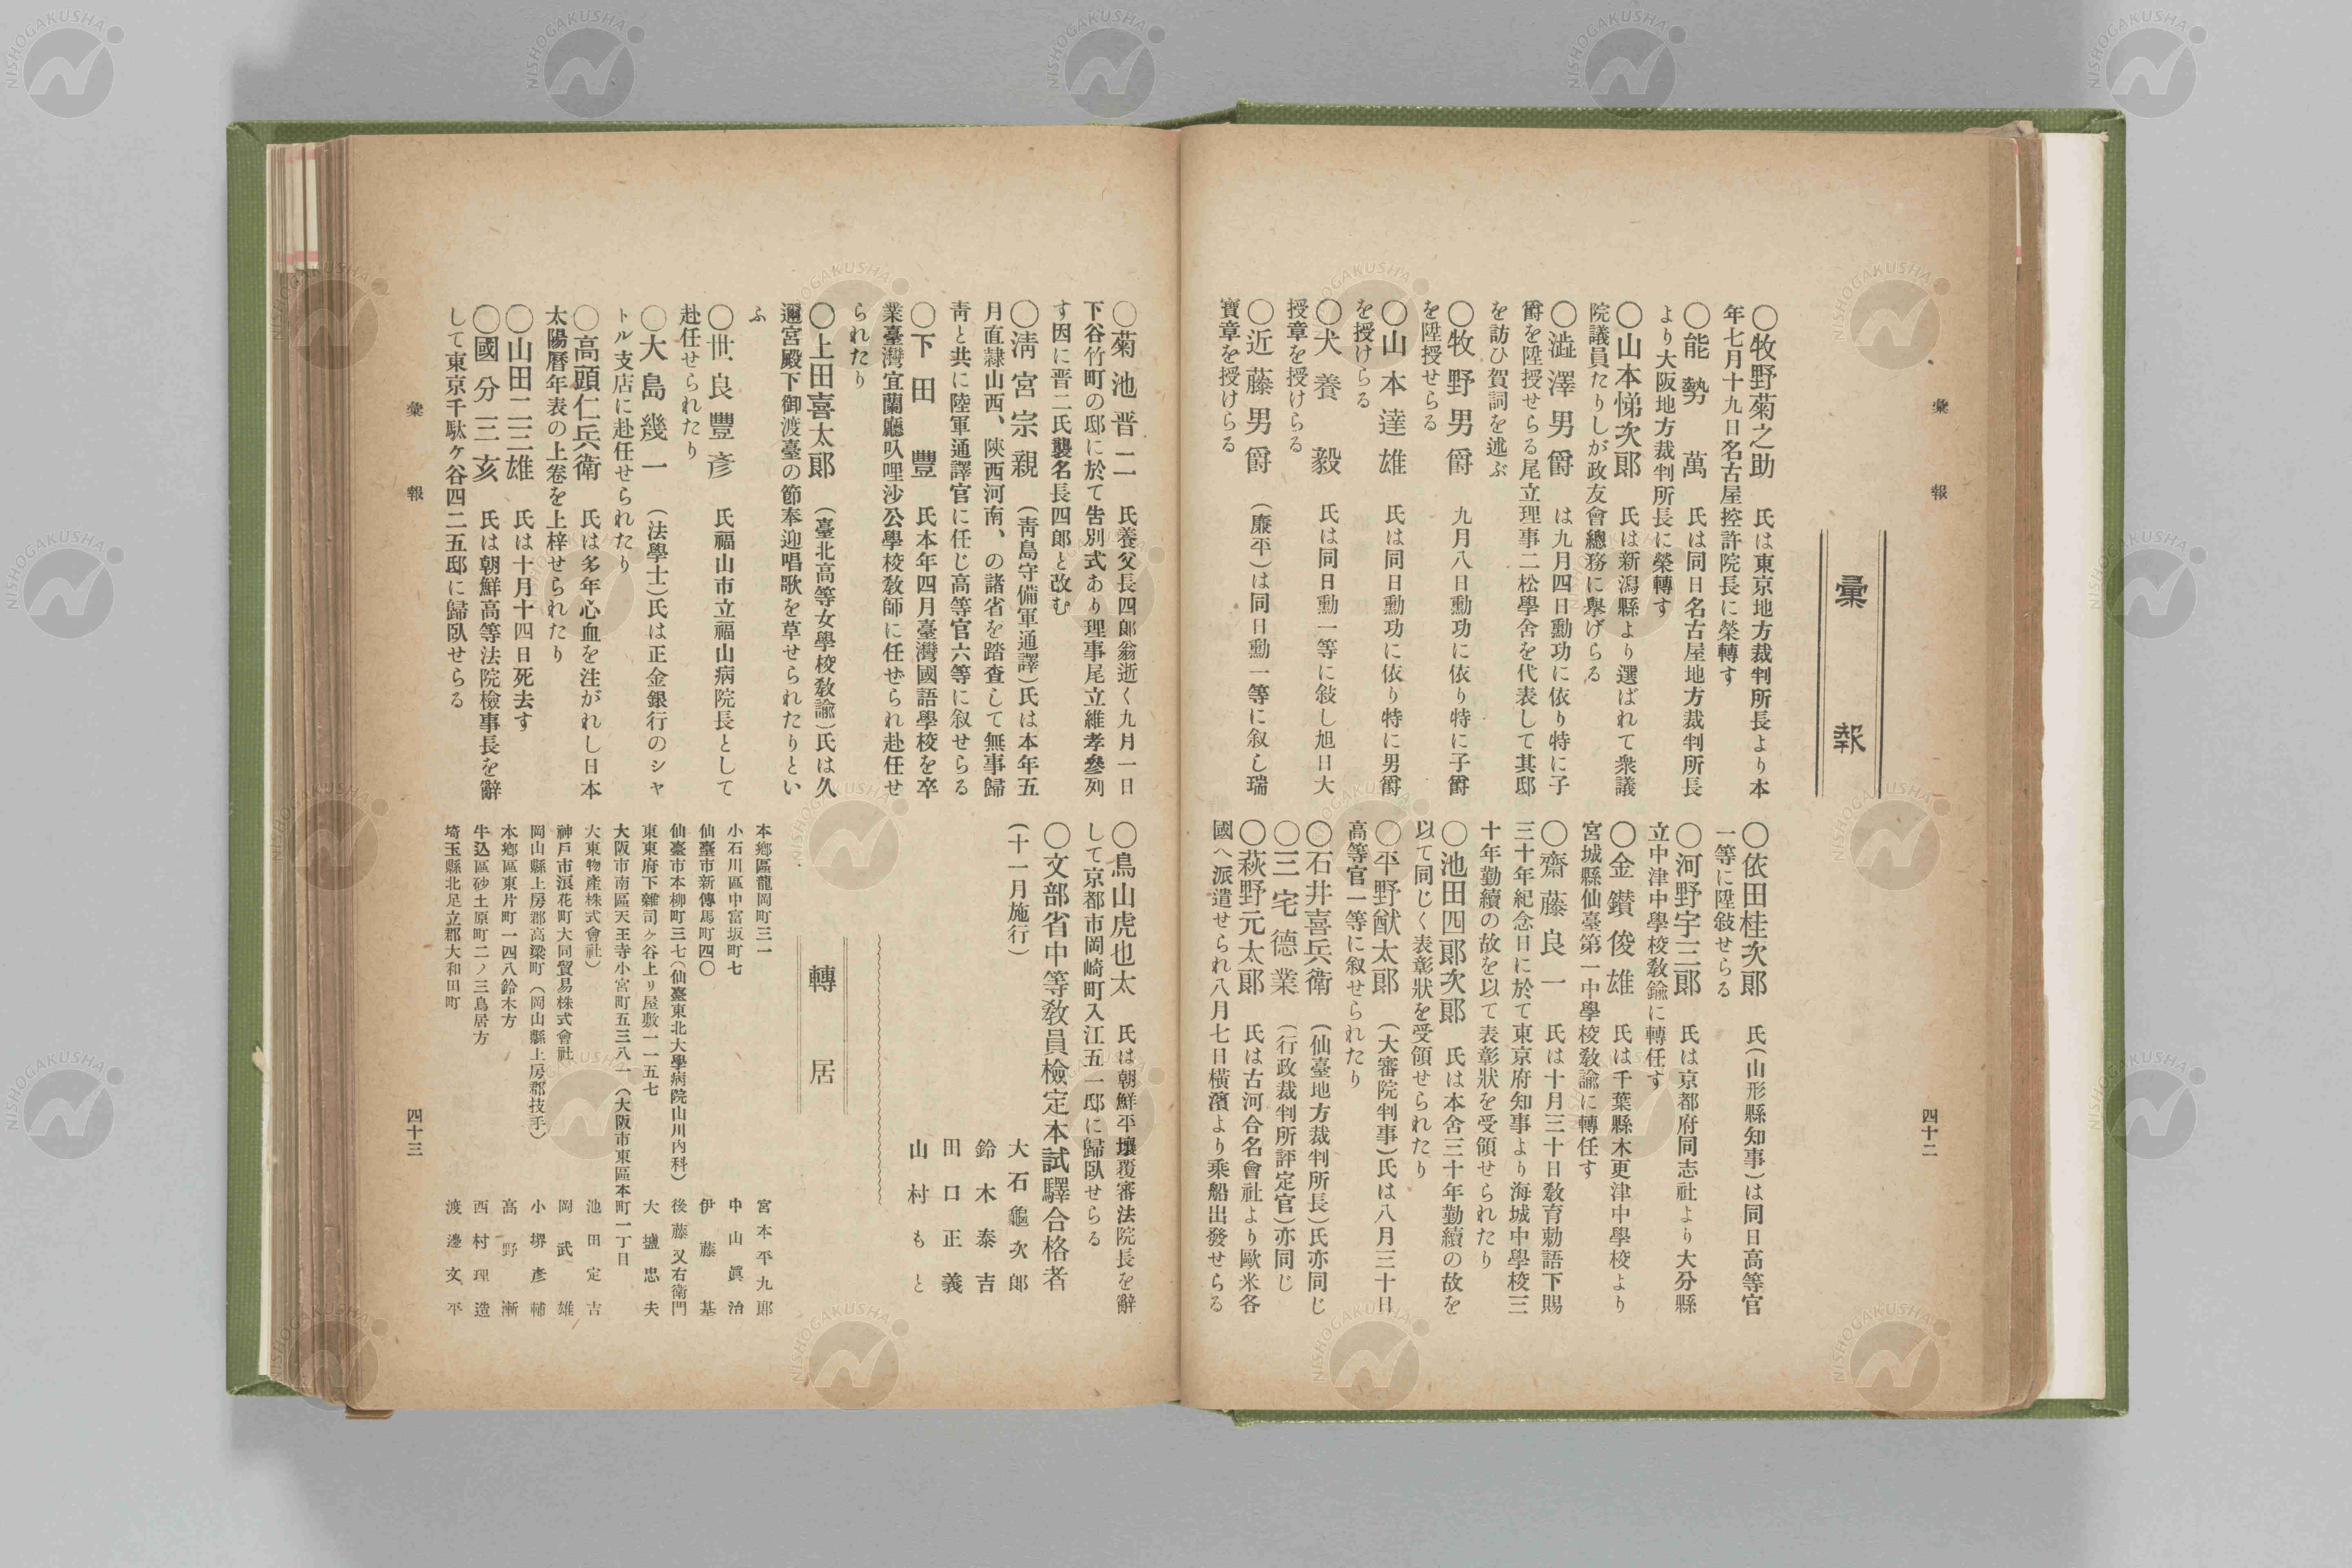 彙報
四十二
彙報
〇牧野菊之助　氏は東京地方裁判所長より本
年七月十九日名古屋控訴院長に榮轉す
〇能勢萬　氏は同日名古屋地方裁判所長
より大阪地方裁判所長に榮轉す
〇山本悌次郎　氏は新潟縣より選ばれて衆議
院議員たりしが政友會總務に擧げらる
〇澁澤男爵　は九月四日勳功に依り特に子
爵を陞授せらる尾立理事二松學舍を代表して其邸
を訪ひ賀詞を述ぶ
〇牧野男爵　九月八日勳功に依り特に子爵
を陞授せらる
〇山本達雄　氏は同日勳功に依り特に男爵
を授けらる
〇犬養毅　氏は同日勳一等に敍し旭日大
授章を授けらる
〇近藤男爵　（廉平）は同日勳一等に叙し瑞
寶章を授けらる
〇依田桂次郎　氏（山形縣知事）は同日高等官
一等に陞敍せらる
〇河野宇三郎　氏は京都府同志社より大分縣
立中津中學校敎諭に轉任す
〇金鑚俊雄　氏は千葉縣木更津中學校より
宮城縣仙臺第一中學校敎諭に轉任す
〇齋藤良一　氏は十月三十日敎育勅語下賜
三十年紀念日に於て東京府知事より海城中學校三
十年勤續の故を以て表彰狀を受領せられたり
〇池田四郎次郎　氏は本舍三十年勤續の故を
以て同じく表彰狀を受領せられたり
〇平野猷太郎　（大審院判事）氏は八月三十日
高等官一等に叙せられたり
〇石井喜兵衛　（仙臺地方裁判所長）氏亦同じ
〇三宅德業　（行政裁判所評定官）亦同じ
〇萩野元太郎　氏は古河合名會社より歐米各
國へ派遣せられ八月七日橫濱より乘船出發せらる
〇菊池晋二　氏養父長四郎翁逝く九月一日
下谷竹町の邸に於て告別式あり理事尾立維孝參列
す因に晋二氏襲名長四郎と改む
〇淸宮宗親　（靑島守備軍通譯）氏は本年五
月直隸山西、陝西河南、の諸省を踏査して無事歸
靑と共に陸軍通譯官に任じ高等官六等に叙せらる
〇下田豐　氏本年四月臺灣國語學校を卒
業臺灣宜蘭廳叭哩沙公學校敎師に任ぜられ赴任せ
られたり
〇上田喜太郎　（臺北高等女學校敎諭）氏は久
邇宮殿下御渡臺の節奉迎唱歌を草せられたりとい
ふ
〇世良豐彥　氏福山市立福山病院長として
赴任せられたり
〇大島幾一　（法學士）氏は正金銀行のシャ
トル支店に赴任せられたり
〇高頭仁兵衛　氏は多年心血を注がれし日本
太陽曆年表の上卷を上梓せられたり
〇山田二三雄　氏は十月十四日死去す
〇國分三亥　氏は朝鮮高等法院檢事長を辭
して東京千駄ヶ谷四二五邸に歸臥せらる
〇鳥山虎也太　氏は朝鮮平壤覆審法院長を辭
して京都市岡崎町入江五一邸に歸臥せらる
〇文部省中等敎員檢定本試驛合格者
（十一月施行）
大石龜次郎
鈴木泰吉
田口正義
山村もと
轉居
本鄕區龍岡町三一　宮本平九郎
小石川區中富坂町七　中山眞治
仙臺市新傳馬町四〇　伊藤基
仙臺市本柳町三七（仙臺東北大學病院山川內科）　後藤又右衛門
東東府下雜司ヶ谷上リ屋敷一一五七　大壚忠夫
大阪市南區天王寺小宮町五三八一（大阪市東區本町一丁目
大東物產株式會社）　池田定吉
神戶市浪花町大同貿易株式會社　岡武雄
岡山縣上房郡高梁町（岡山縣上房郡技手）　小堺彥輔
本鄕區東片町一四八鈴木方　高野漸
牛込區砂土原町二ノ三鳥居方　西村理造
埼玉縣北足立郡大和田町　渡邊文平
彙報
四十三